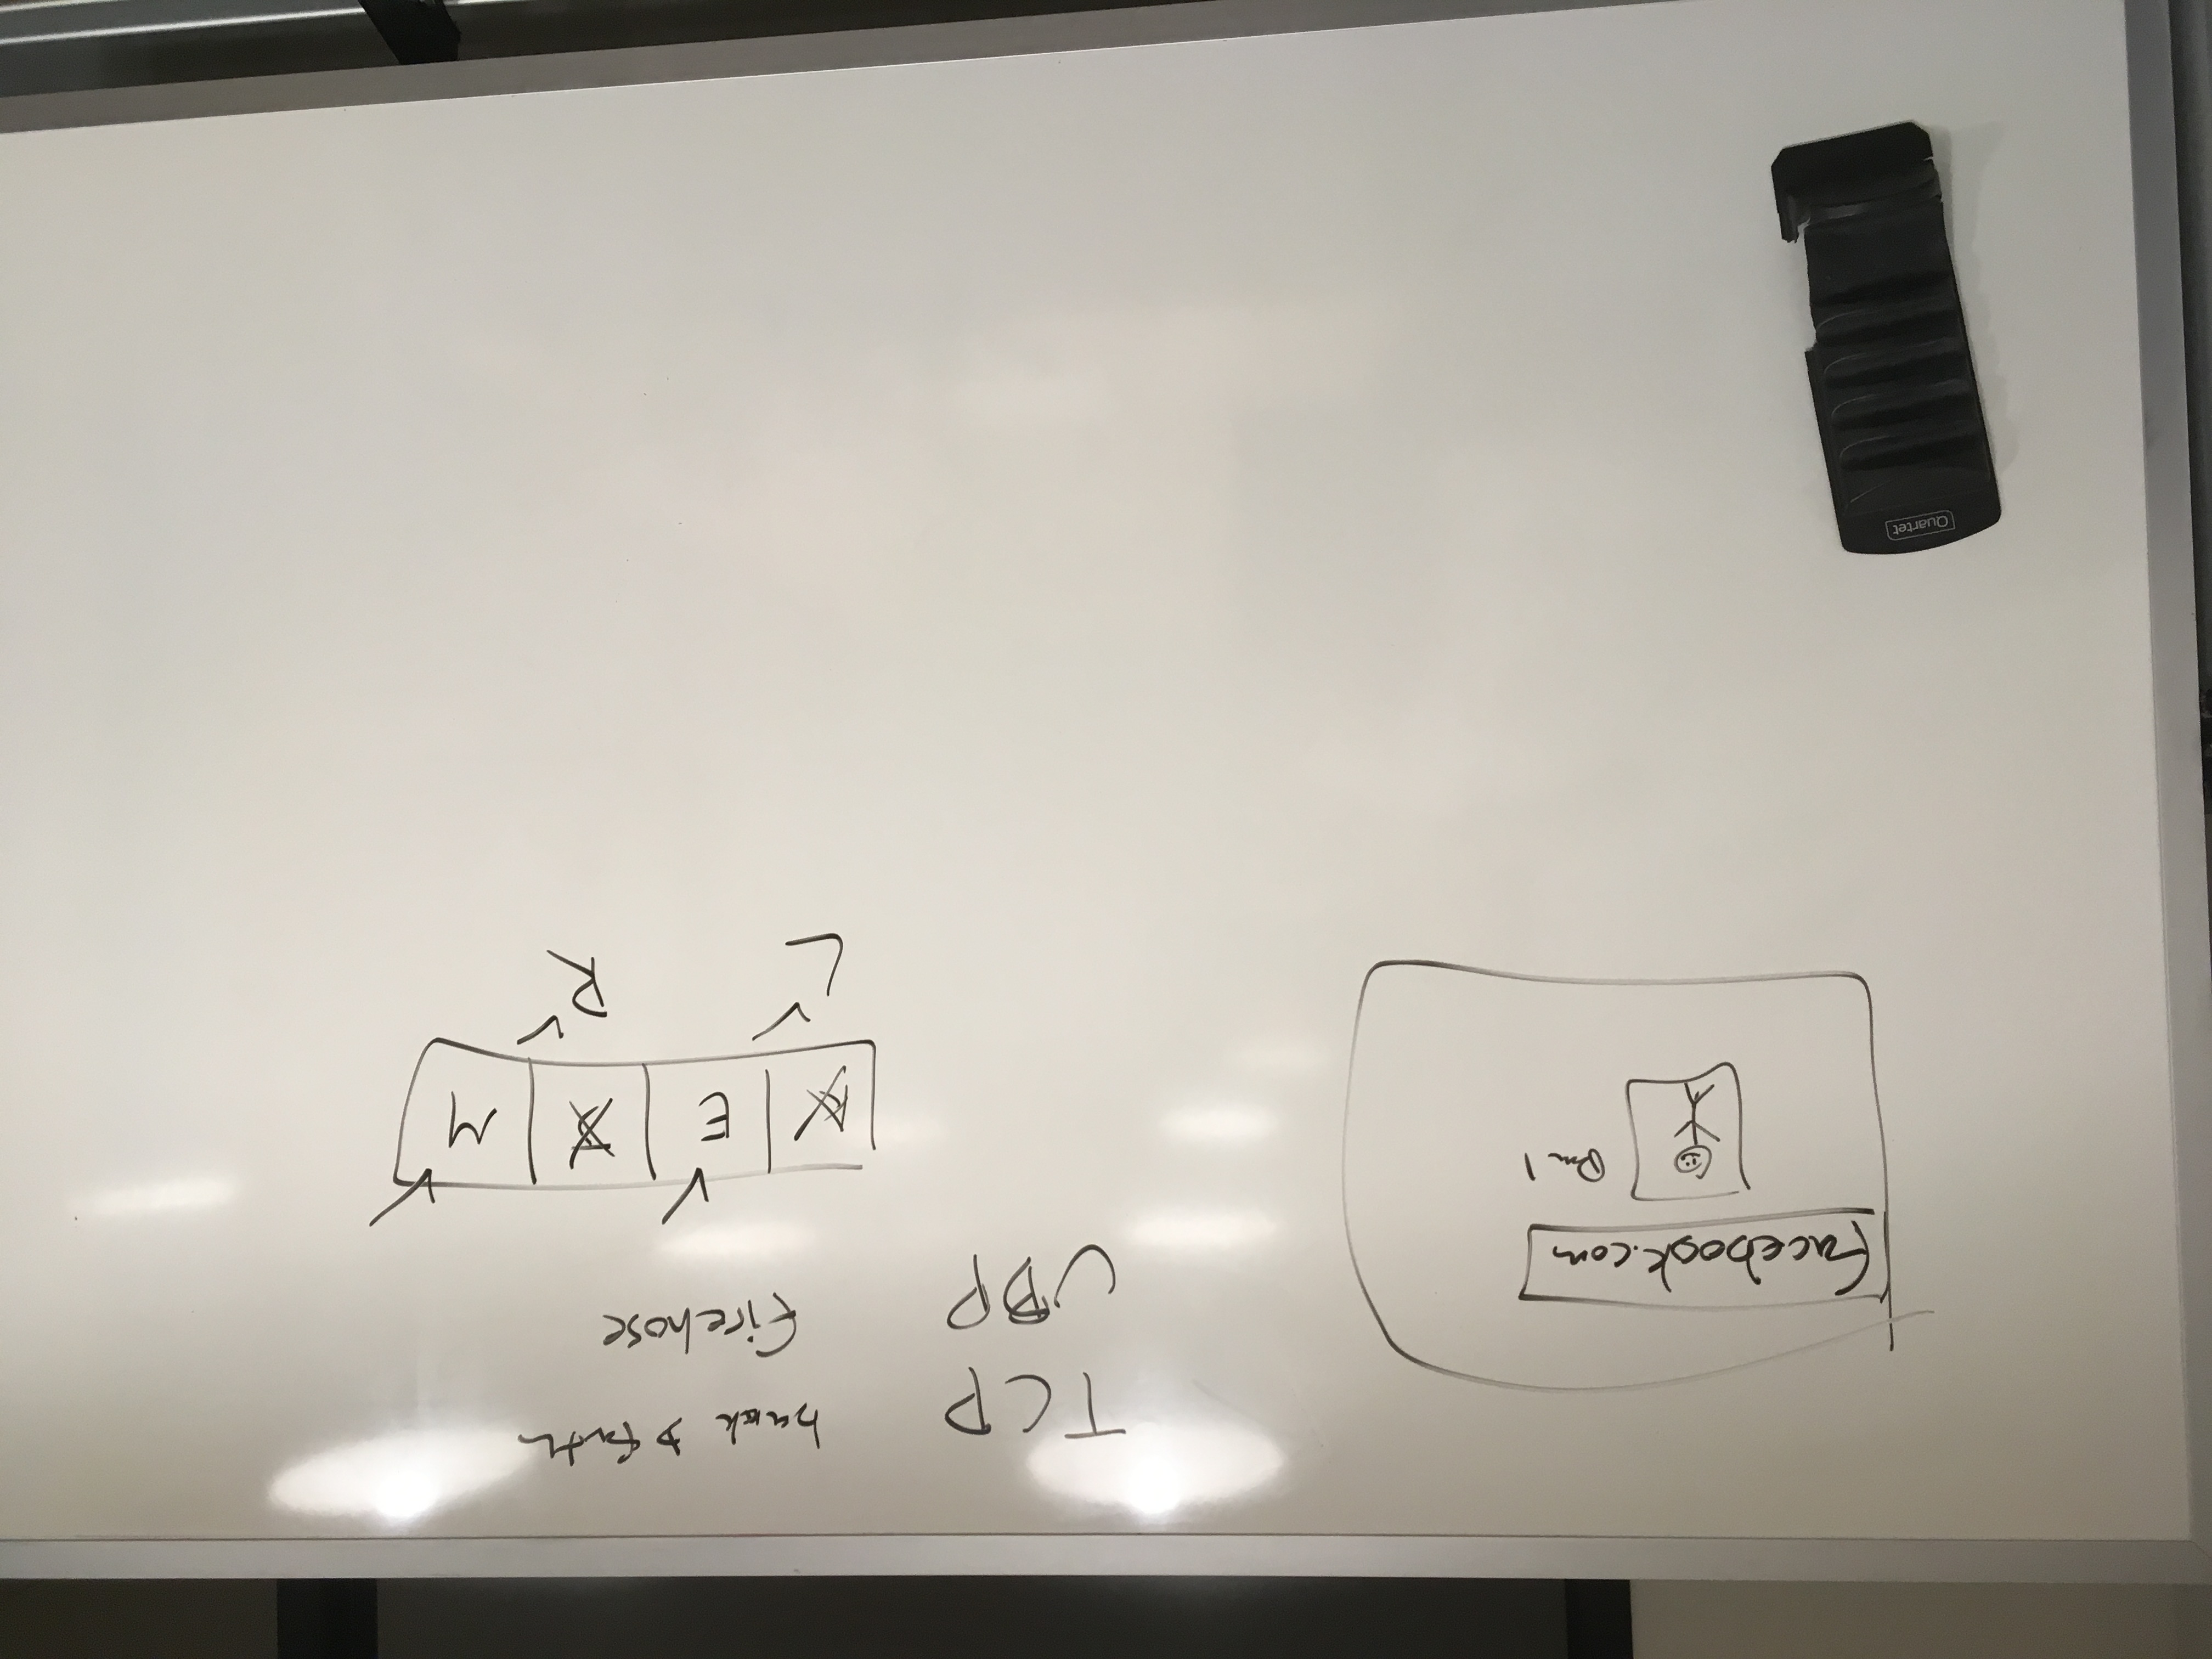 facebook.com
TCP back & forth
UDP firehose
E M
L R
Quartet